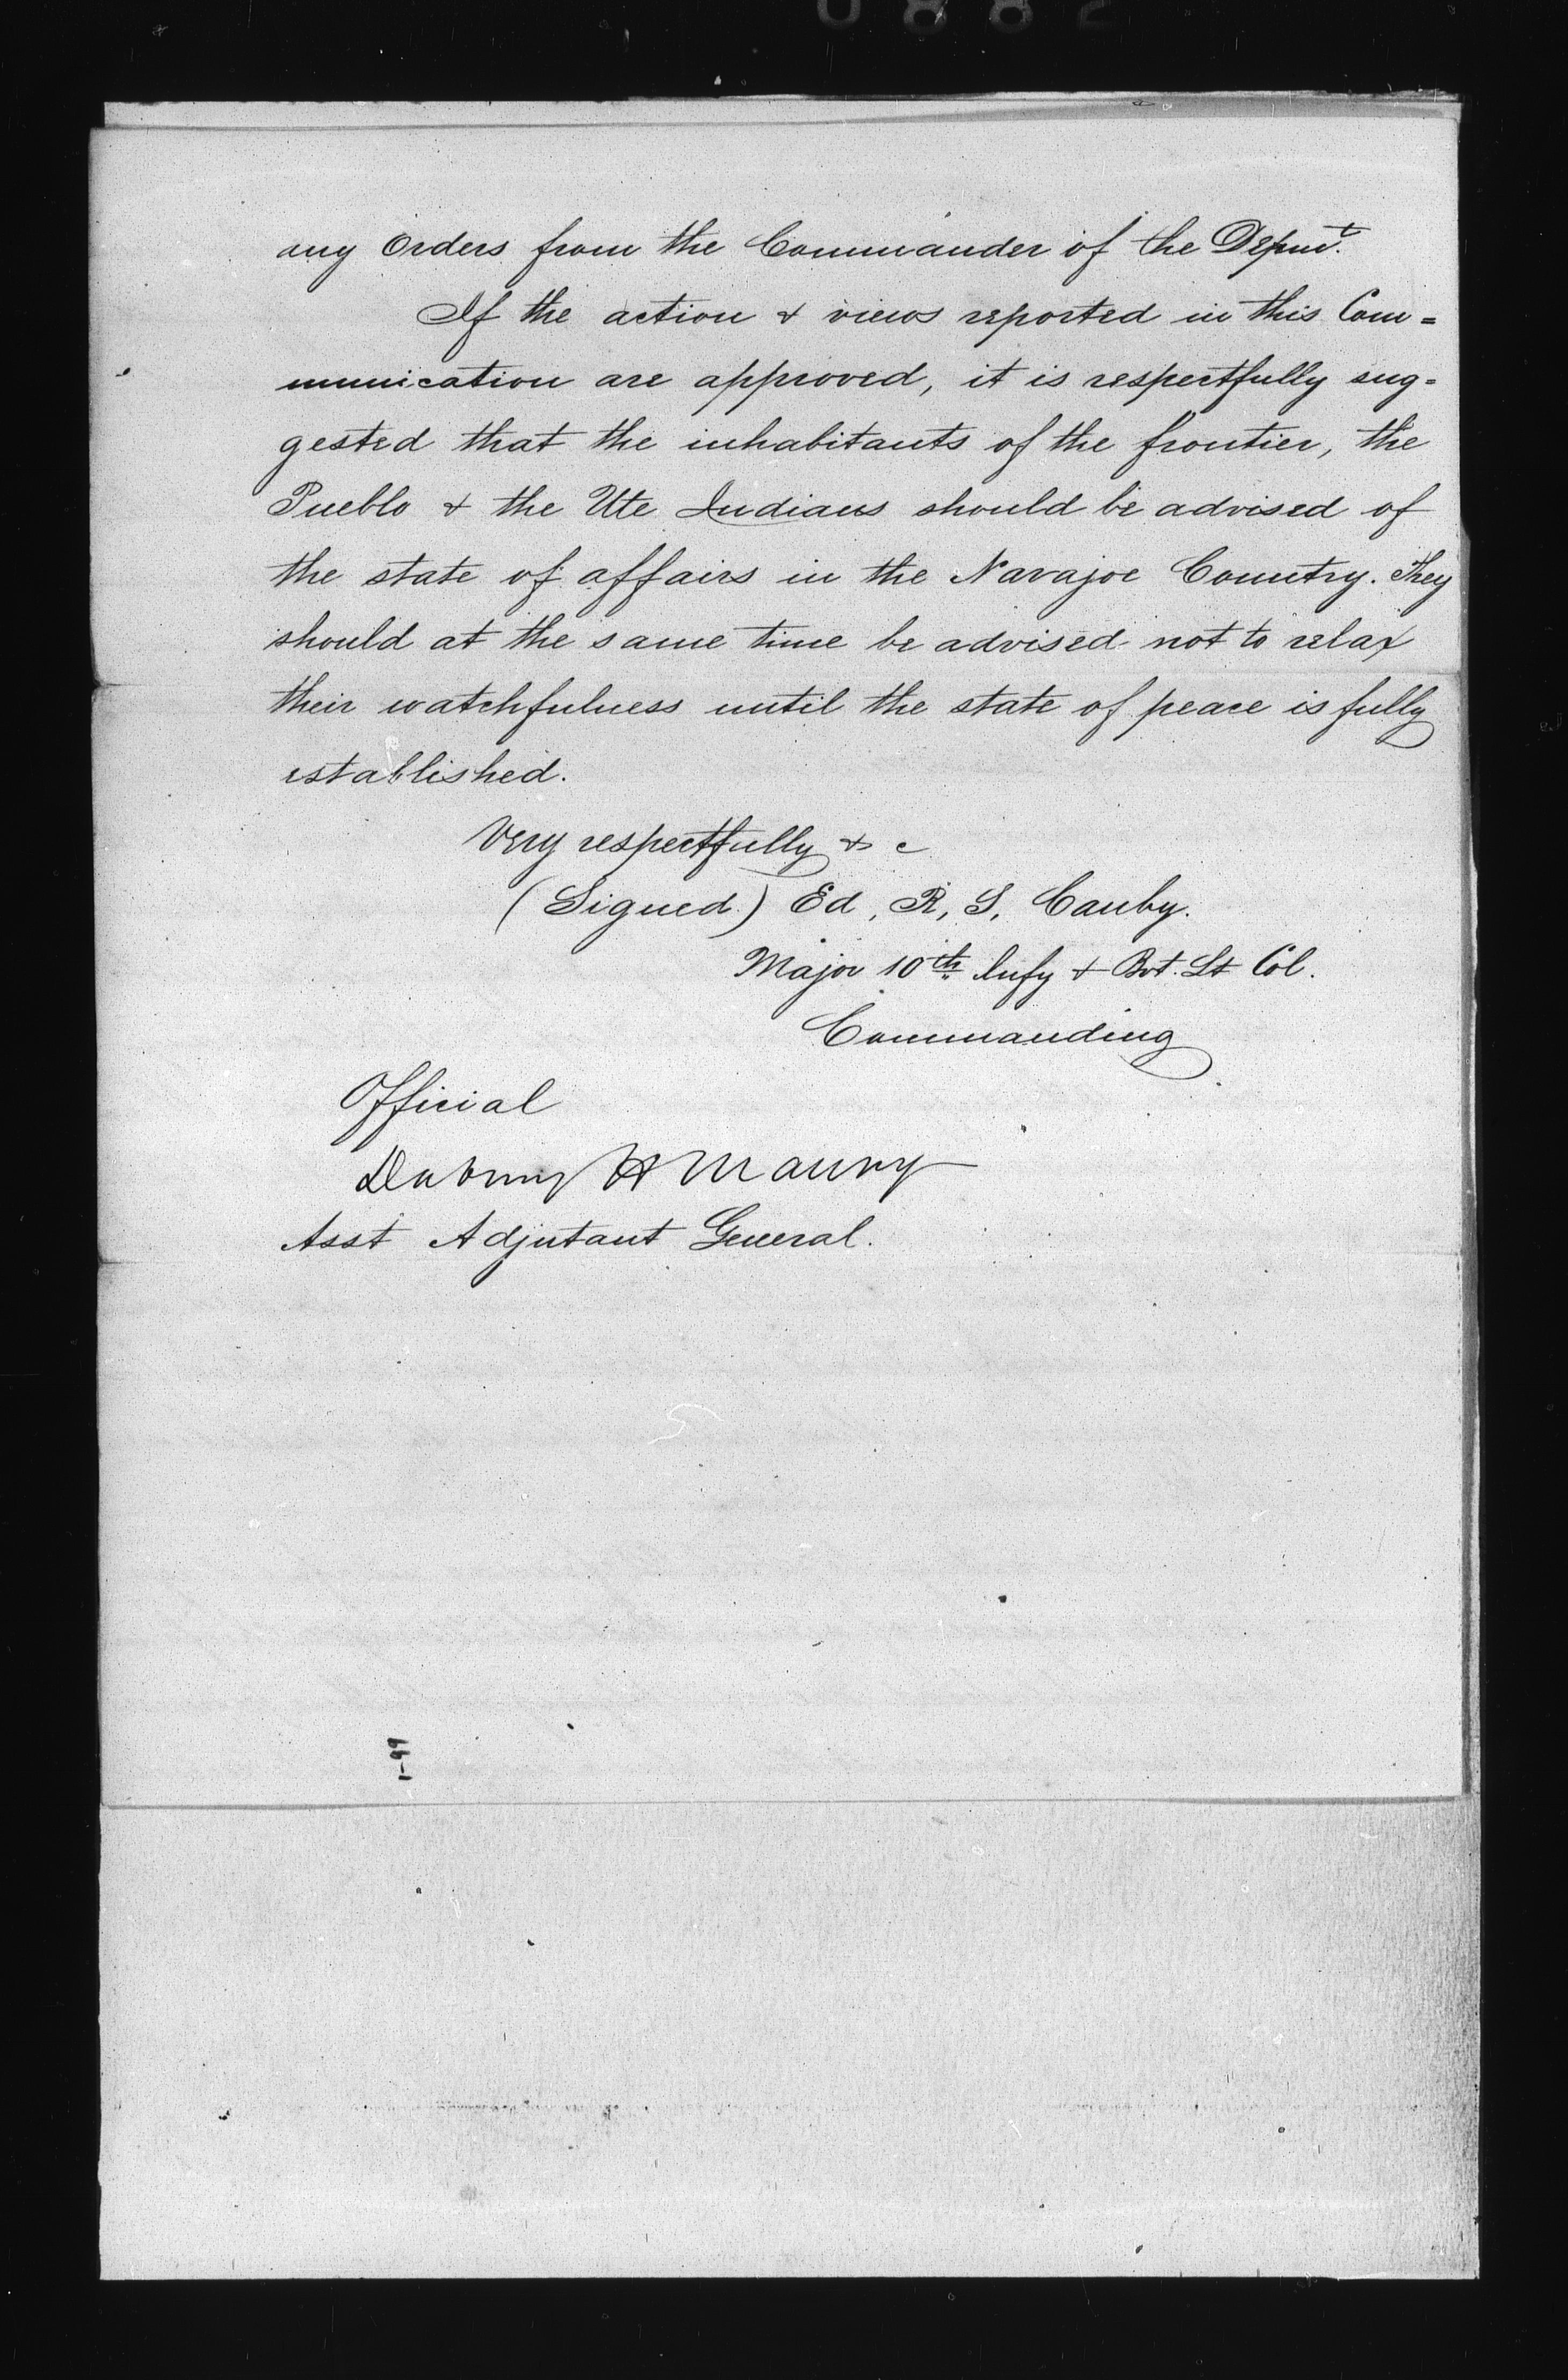 0882
any Orders from the Commander of the Depmt.
If the action & views reported in this Com=
munication are approved, it is respectfully sug=
gested that the inhabitants of the frontier, the
Pueblo & the Ute Indians should be advised of
the state of affairs in the Navajoe Country. They
should at the same time be advised not to relax
their watchfulness until the state of peace is fully
established.
Very respectfully & c
(Signed) Ed, R, S, Canby.
Major 10th Infy & Bvt. Lt Col.
Commanding
Official
Dabney H Maury
Asst Adjutant General.
1-99